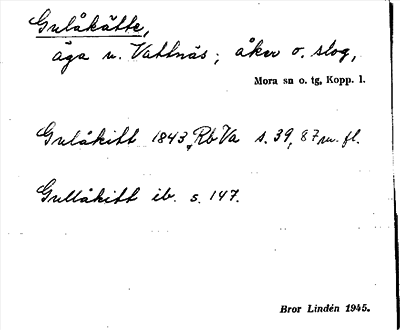 Gulåkätte,
äga u. Vattnäs; åker o. slog,
Mora sn o. tg, Kopp. l.
Gulåkitt 1843, Rb Va s. 39, 87 m. fl.
Gullåkitt ib. s. 147.
Bror Lindén 1945.